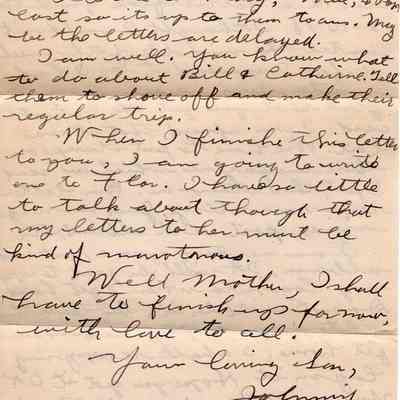 last so its up to them to ans. May
be the letters are delayed.
I am well. You know what
to do about Bill & Catherine. Tell
them to shove off and make their
regular trip.
When I finishe this letter
to you, I am going to write
one to Flor. I have so little
to talk about though that
my letters to her must be
kind of monotonous.
Well Mother, I shall
have to finish up for now,
with love to all.
Your loving Son,
Johnnie